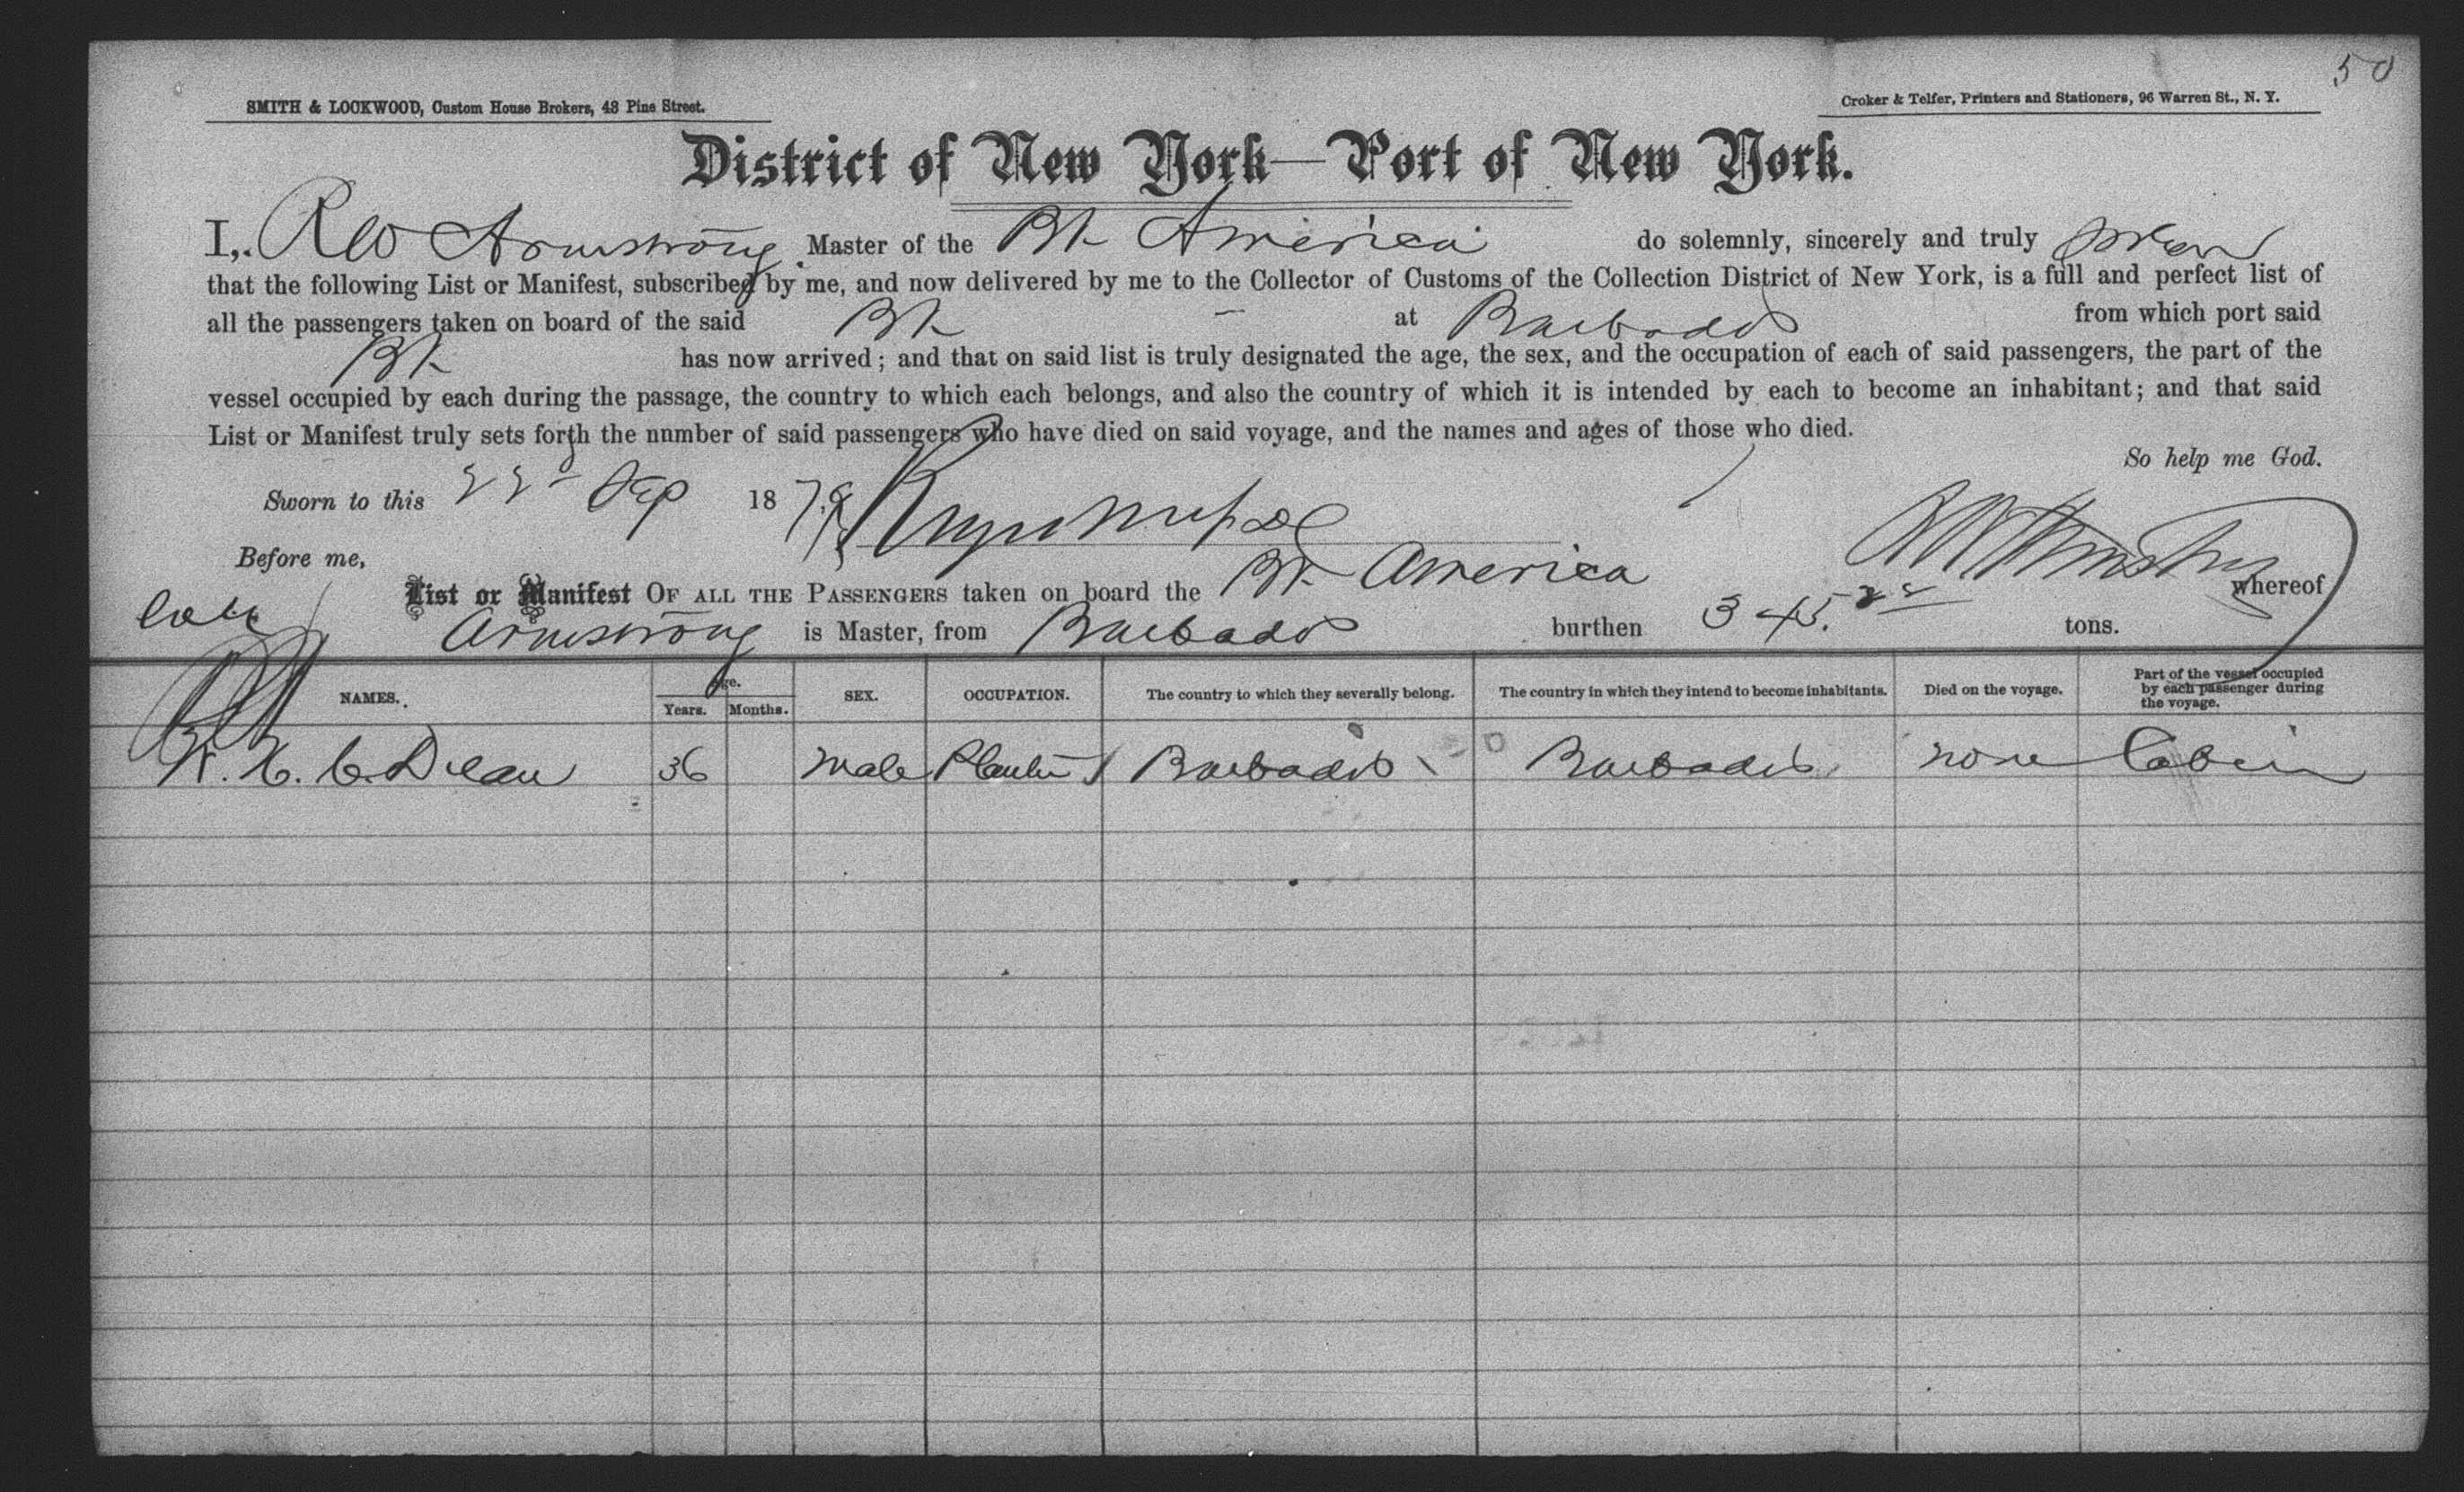 50
SMITH & LOCKWOOD, Custom House Brokers, 48 Pine Street.
Croker & Telfer, Printers and Stationers, 96 Warren St., N. Y.
District of New York—Port of New York.
I, R W Armstrong Master of the Bk America do solemnly, sincerely and truly swear
that the following List or Manifest, subscribed by me, and now delivered by me to the Collector of Customs of the Collection District of New York, is a full and perfect list of
all the passengers taken on board of the said Bk at Barbados from which port said
Bk has now arrived; and that on said list is truly designated the age, the sex, and the occupation of each of said passengers, the part of the
vessel occupied by each during the passage, the country to which each belongs, and also the country of which it is intended by each to become an inhabitant; and that said
List or Manifest truly sets forth the nnmber of said passengers who have died on said voyage, and the names and ages of those who died.
So help me God.
Sworn to this 22d Sep 1879
R W Armstrong
Before me,
List or Manifest OF ALL THE PASSENGERS taken on board the Bk America whereof
Armstrong is Master, from Barbados burthen 345.22 tons.
NAMES. Age. Years. Months. SEX. OCCUPATION. The country to which they severally belong. The country in which they intend to become inhabitants. Died on the voyage. Part of the vessel occupied by each passenger during the voyage.
36 Male Planter Barbados Barbados none Cabin